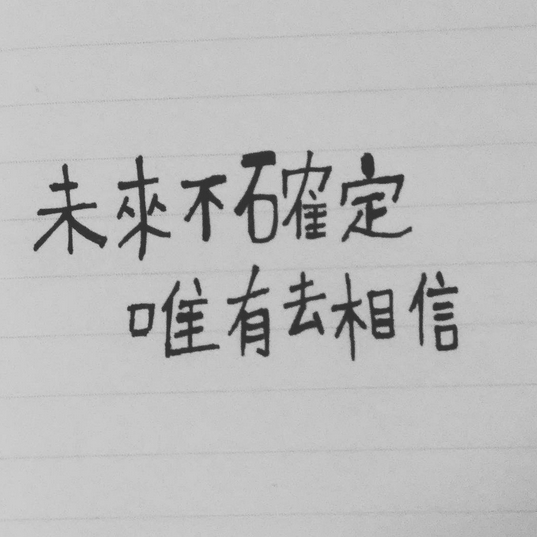 未來不確定
唯有去相信